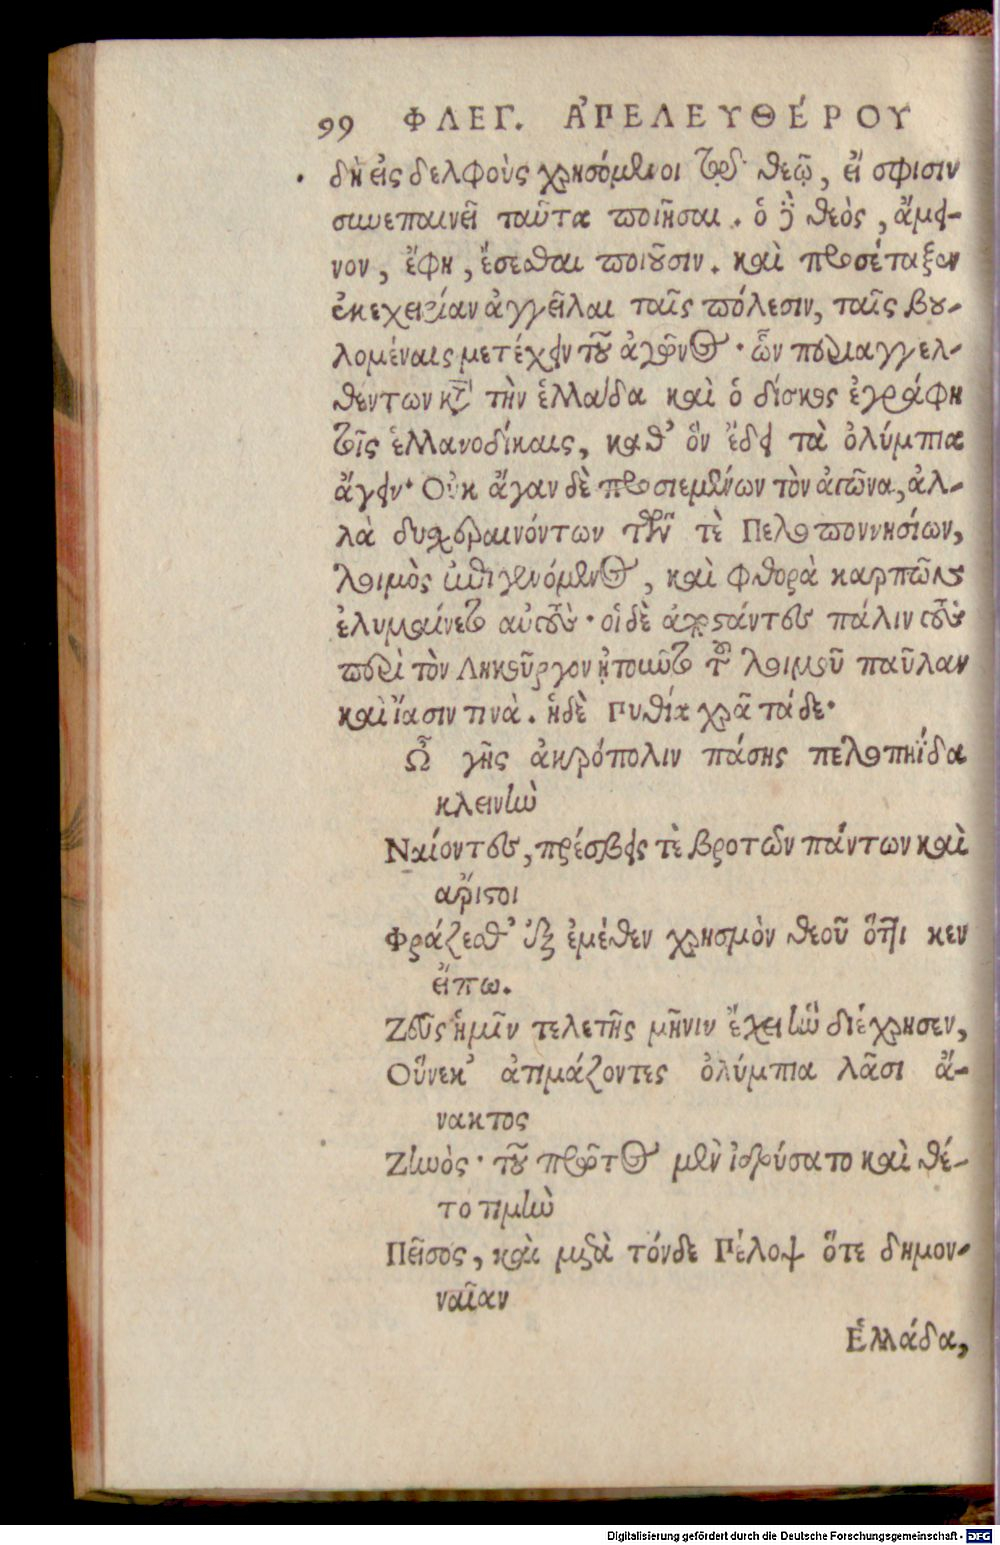 99 ΦΛΕΓ. ἈΠΕΛΕΥΘΈΡΟΥ
δὴ εἰς δελφοὺς χρησόμενοι τῷ θεῷ, εἴ σφισιν
συνεπαινεῖ ταῦτα ποιῆσαι. ὁ δὲ θεὸς, ἄμει-
νον, ἔφη, ἔσεσθαι ποιοῦσιν. καὶ προσέταξεν
ἐκεχειρίαν ἀγγεῖλαι ταῖς πόλεσιν, ταῖς βου-
λομέναις μετέχειν τοῦ ἀγῶνος· ὧν περιαγγελ-
θέντων κατὰ τὴν ἑλλάδα καὶ ὁ δίσκος ἐγράφη
τοῖς ἑλλανοδίκαις, καθ' ὃν ἔδει τὰ ὀλύμπια
ἄγειν· Οὐκ ἄγαν δὲ προσιεμένων τὸν ἀγῶνα, ἀλ-
λὰ δυσχεραινόντων τῶν τὲ Πελοποννησίων,
λοιμὸς ἐπιγενόμενος, καὶ φθορὰ καρπῶν
ἐλυμαίνετο αὐτούς· οἱ δὲ ἀποστάντες πάλιν τοὺς
περὶ τὸν Λυκοῦργον ᾐτοῦντο τοῦ λοιμοῦ παῦλαν
καὶ ἴασιν τινὰ. ἡ δὲ Πυθία χρᾷ τάδε·
Ὦ γῆς ἀκρόπολιν πάσης πελοπηΐδα
κλεινὴν
Ναίοντες, πρέσβεις τὲ βροτῶν πάντων καὶ
ἄριστοι
Φράζεσθ' ἐξ ἐμέθεν χρησμὸν θεοῦ ὅττι κεν
εἴπω.
Ζεῦς ἡμῖν τελετῆς μῆνιν ἔχει ἣν διέχρησεν,
Οὕνεκ' ἀτιμάζοντες ὀλύμπια λᾶσι ἄ-
νακτος
Ζηνὸς· τοῦ πρῶτος μὲν ἱδρύσατο καὶ θέ-
το τιμὴν
Πεῖσος, καὶ μετὰ τόνδε Πέλοψ ὅτε δημον-
ναῖαν
Ἑλλάδα,
Digitalisierung gefördert durch die Deutsche Forschungsgemeinschaft - DFG